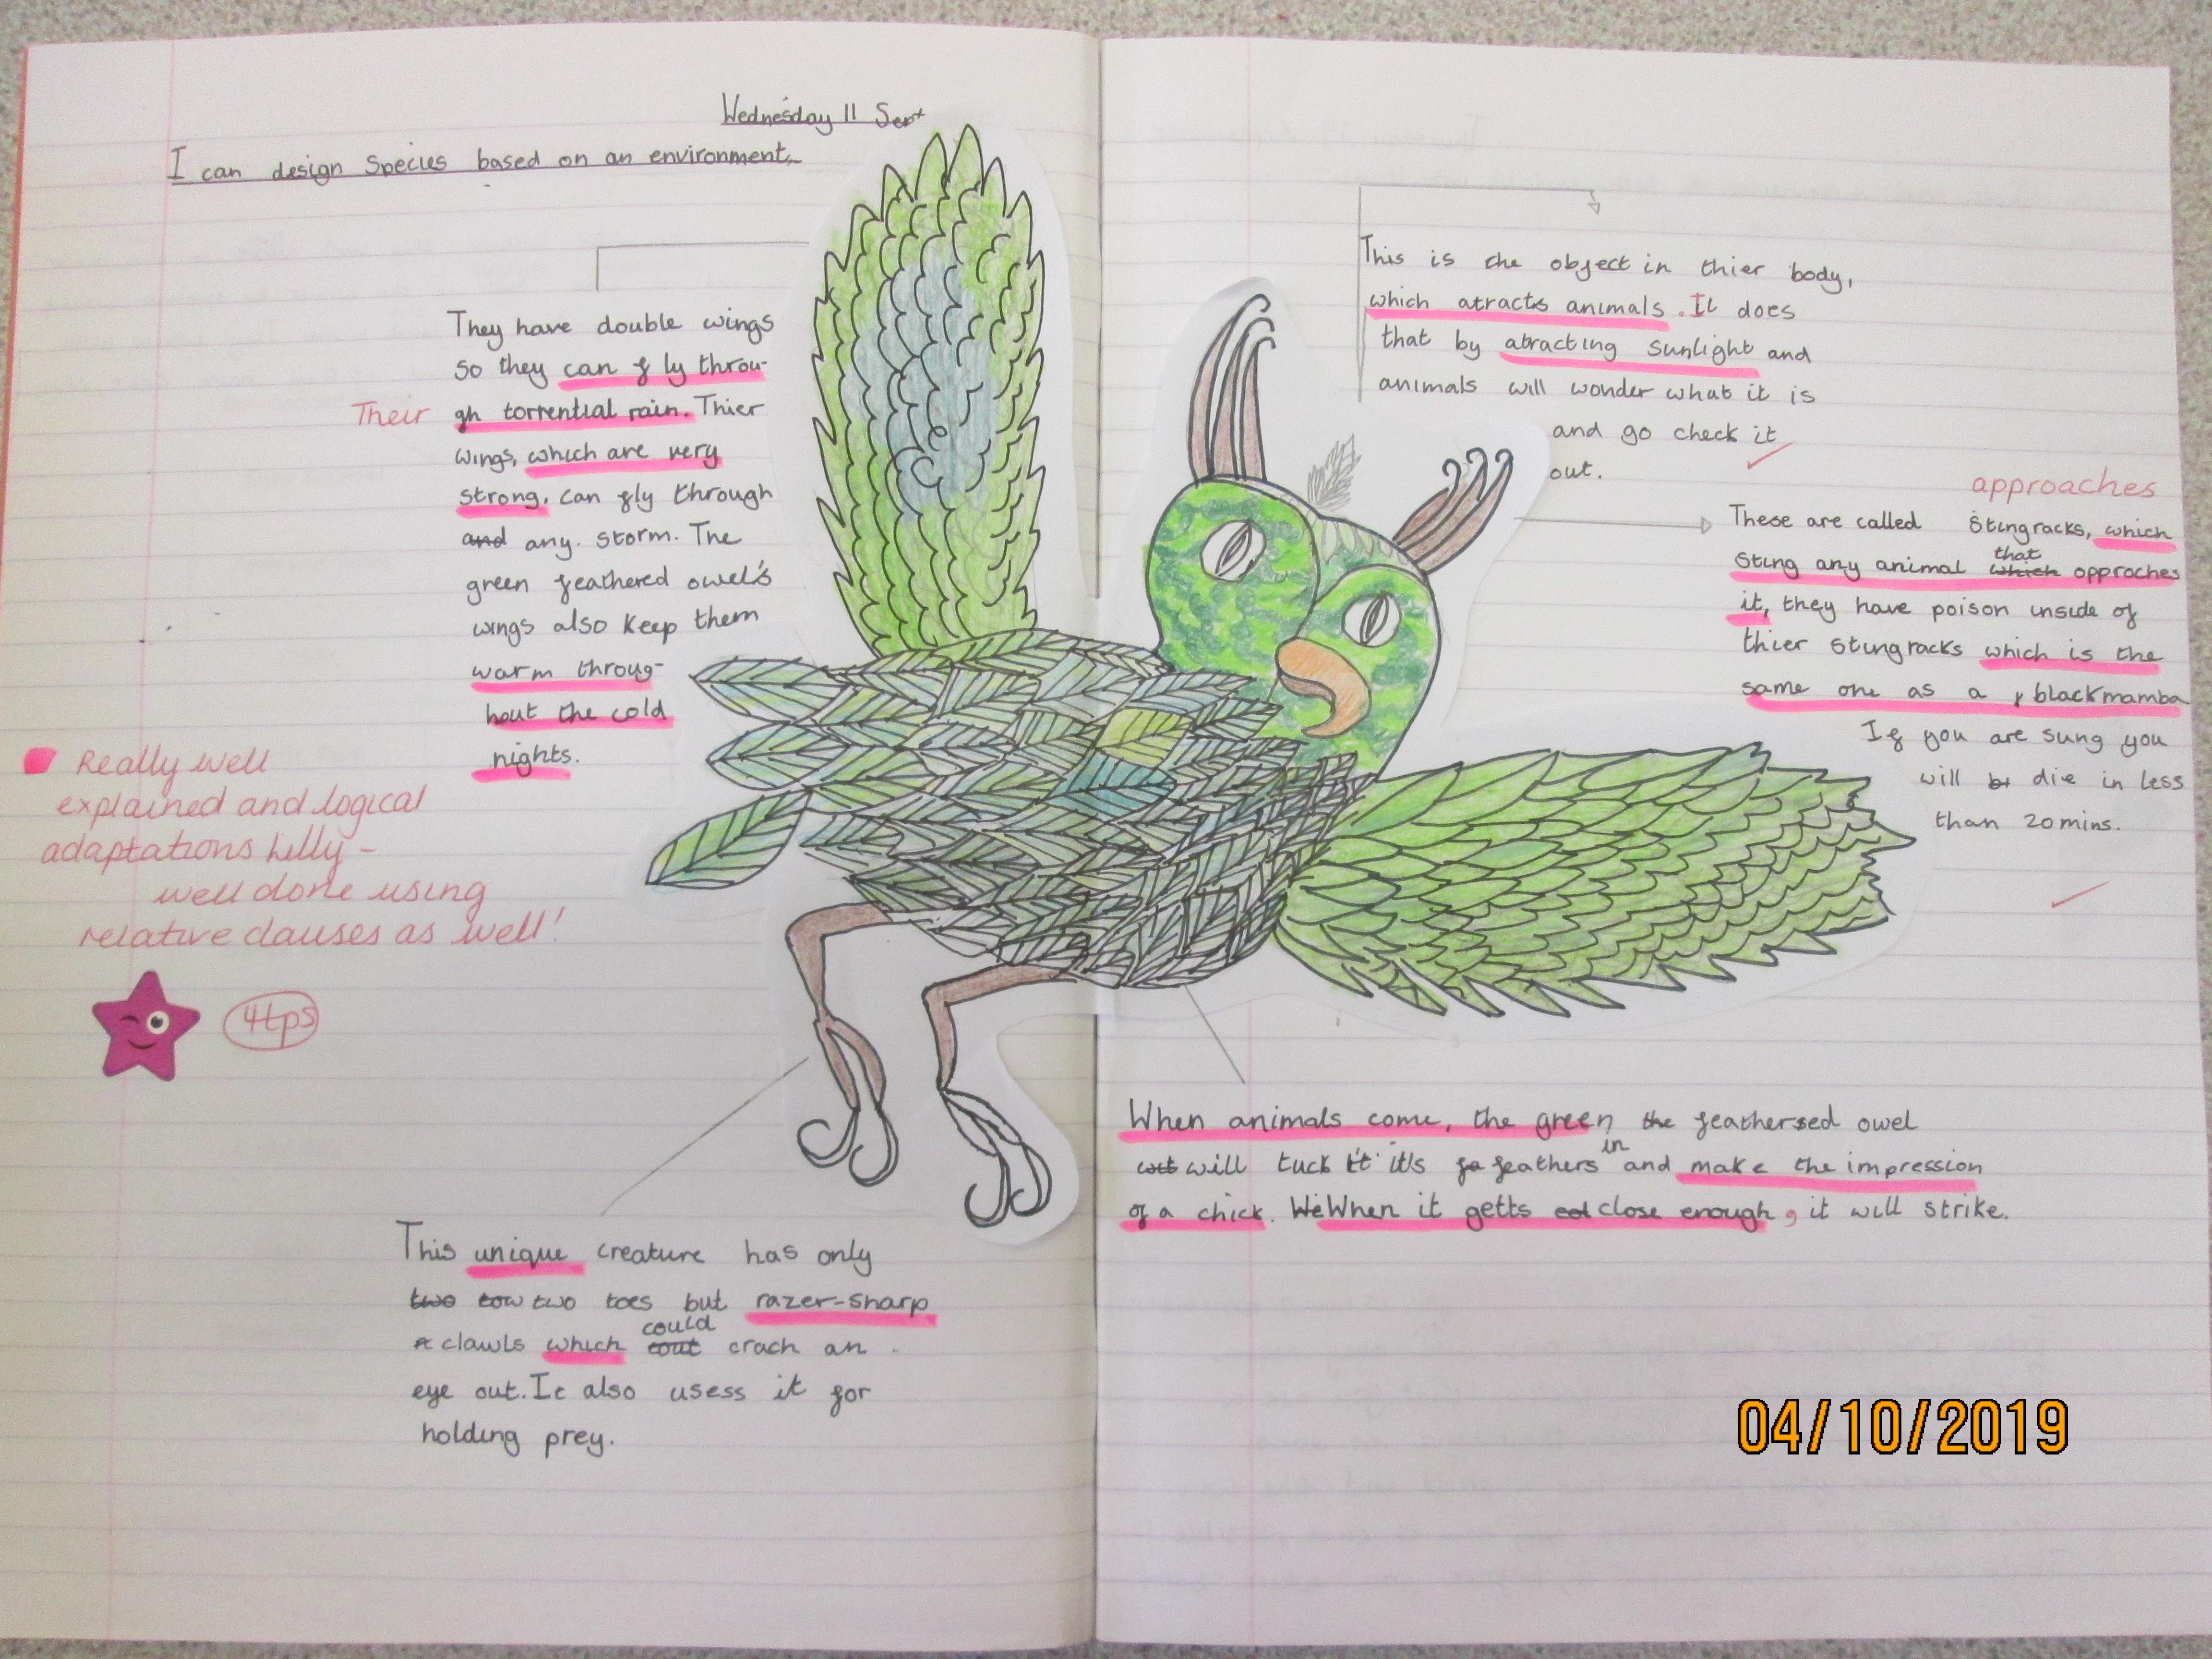 Wednesday 11 Sept
I can design Species based on an environment.
They have double wings
so they can fly throu-
gh torrential rain. Thier
Their
wings, which are very
strong, can fly through
and any. storm. The
green feathered owel's
wings also keep them
warm throug-
hout the cold
nights.
Really well
explained and logical
adaptations Lilly -
well done using
relative clauses as well!
4tps
This unique creature has only
two tow two toes but razer-sharp
clawls which could crach an
eye out. It also usess it for
holding prey.
This is the object in thier body,
which atracts animals. It does
that by atracting sunlight and
animals will wonder what it is
and go check it
out.
approaches
These are called Stingracks, which
sting any animal which that opproches
it, they have poison inside of
thier stingracks which is the
same one as a blackmamba
If you are sung you
will die in less
than 20mins.
When animals come, the green the feathersed owel
will tuck it it's feathers in and make the impression
of a chick. We When it getts close enough, it will strike.
04/10/2019